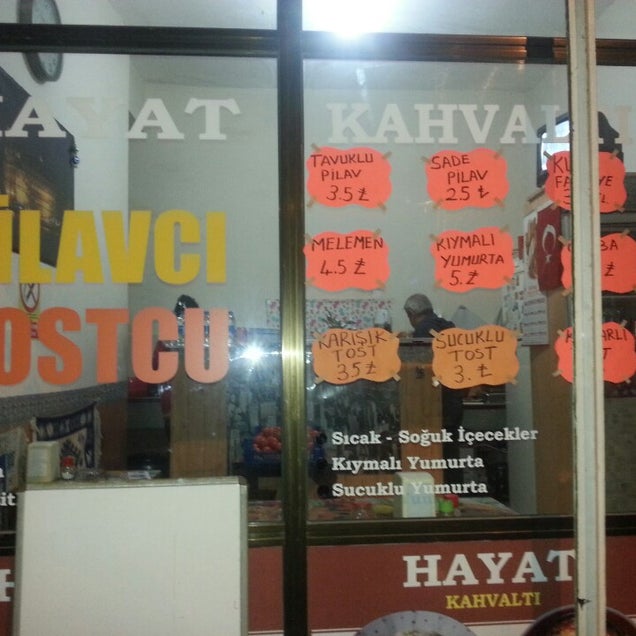 HAYAT
KAHVALTI
TAVUKLU
PİLAV
3.5 ₺
SADE
PİLAV
2.5 ₺
İLAVCI
MELEMEN
4.5 ₺
KIYMALI
YUMURTA
5. ₺
BA
₺
OSTCU
KARIŞIK
TOST
3.5 ₺
SUCUKLU
TOST
3. ₺
Sıcak - Soğuk İçecekler
Kıymalı Yumurta
Sucuklu Yumurta
HAYAT
KAHVALTI